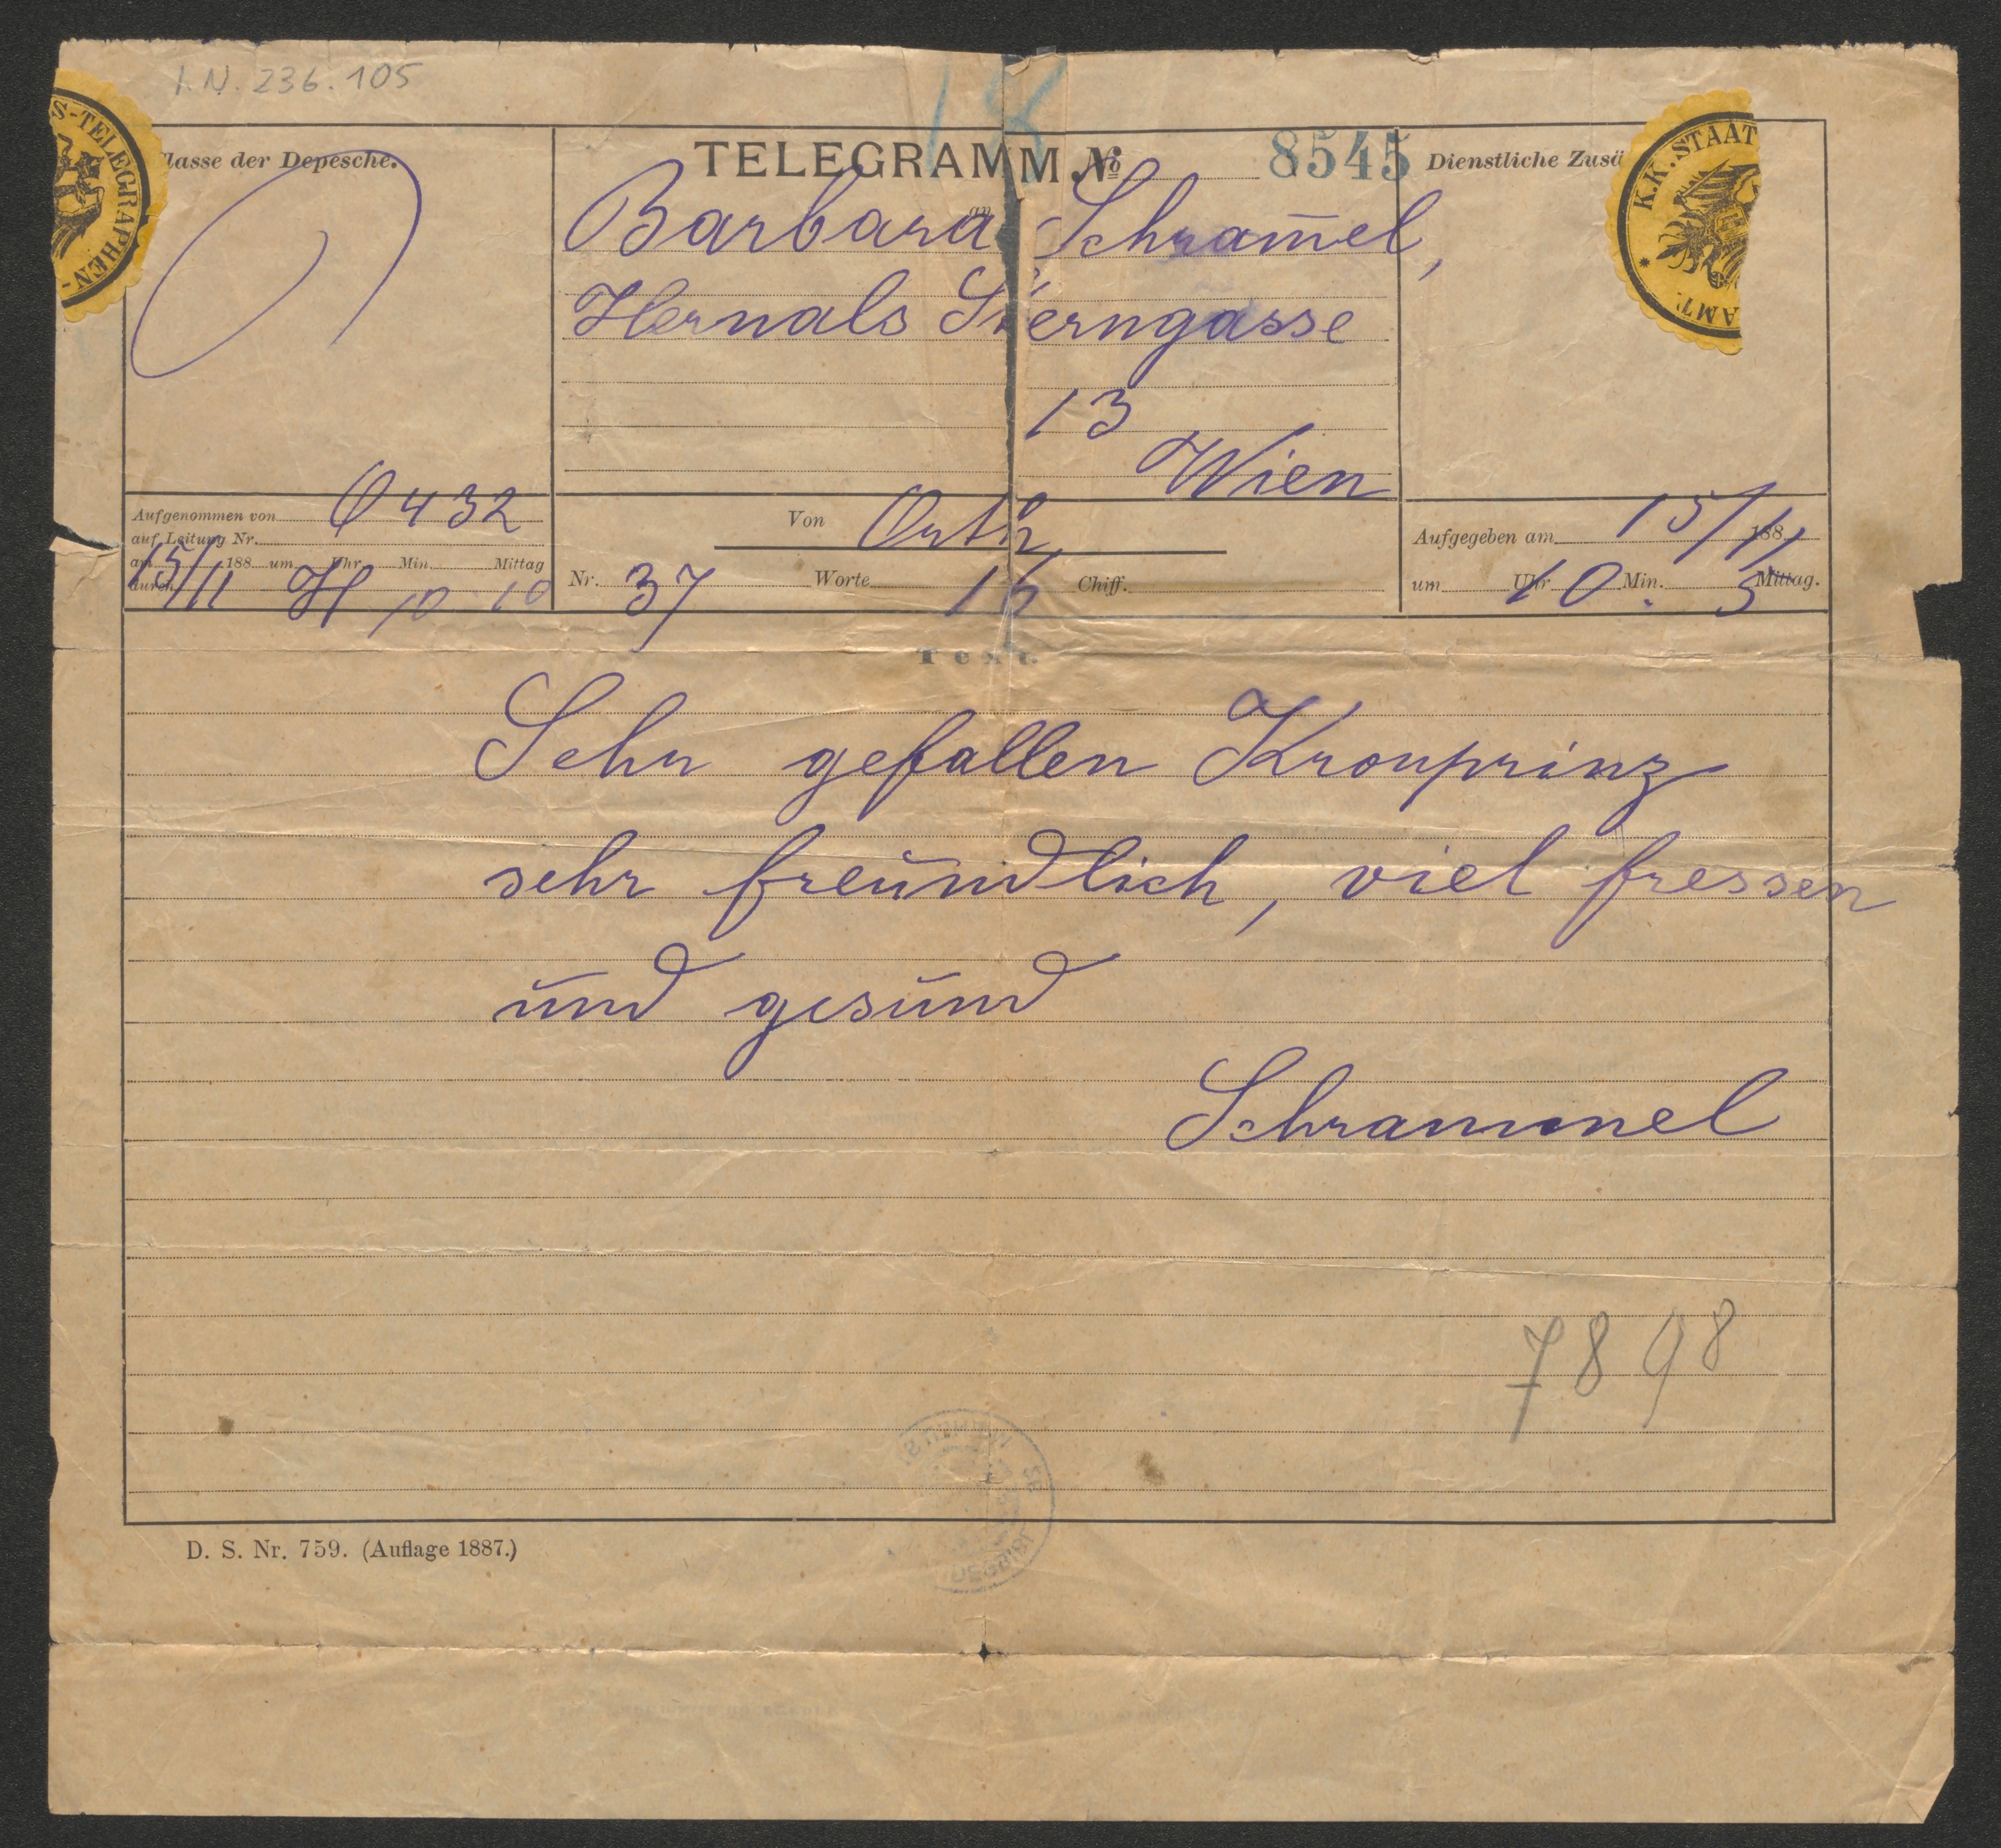 I.N. 236.105
18
S-TELEGRAPHEN-
lasse der Depesche.
TELEGRAMM No 8545
Dienstliche Zusä
K.K. STAAT
AMT.
an
Barbara Schram̄el,
Hernals Sterngasse
13
Wien
Aufgenommen von 0432
auf Leitung Nr.
am 15/11 188 um Uhr Min. Mittag
durch H 10 10
Von Orth
Nr. 37 Worte 16 Chiff.
Aufgegeben am 15/11 188
um Uhr 10. Min. 5 Mittag.
Text.
Sehr gefallen Kronprinz
sehr freundlich, viel fressen
und gesund
Schrammel
7898
D. S. Nr. 759. (Auflage 1887.)